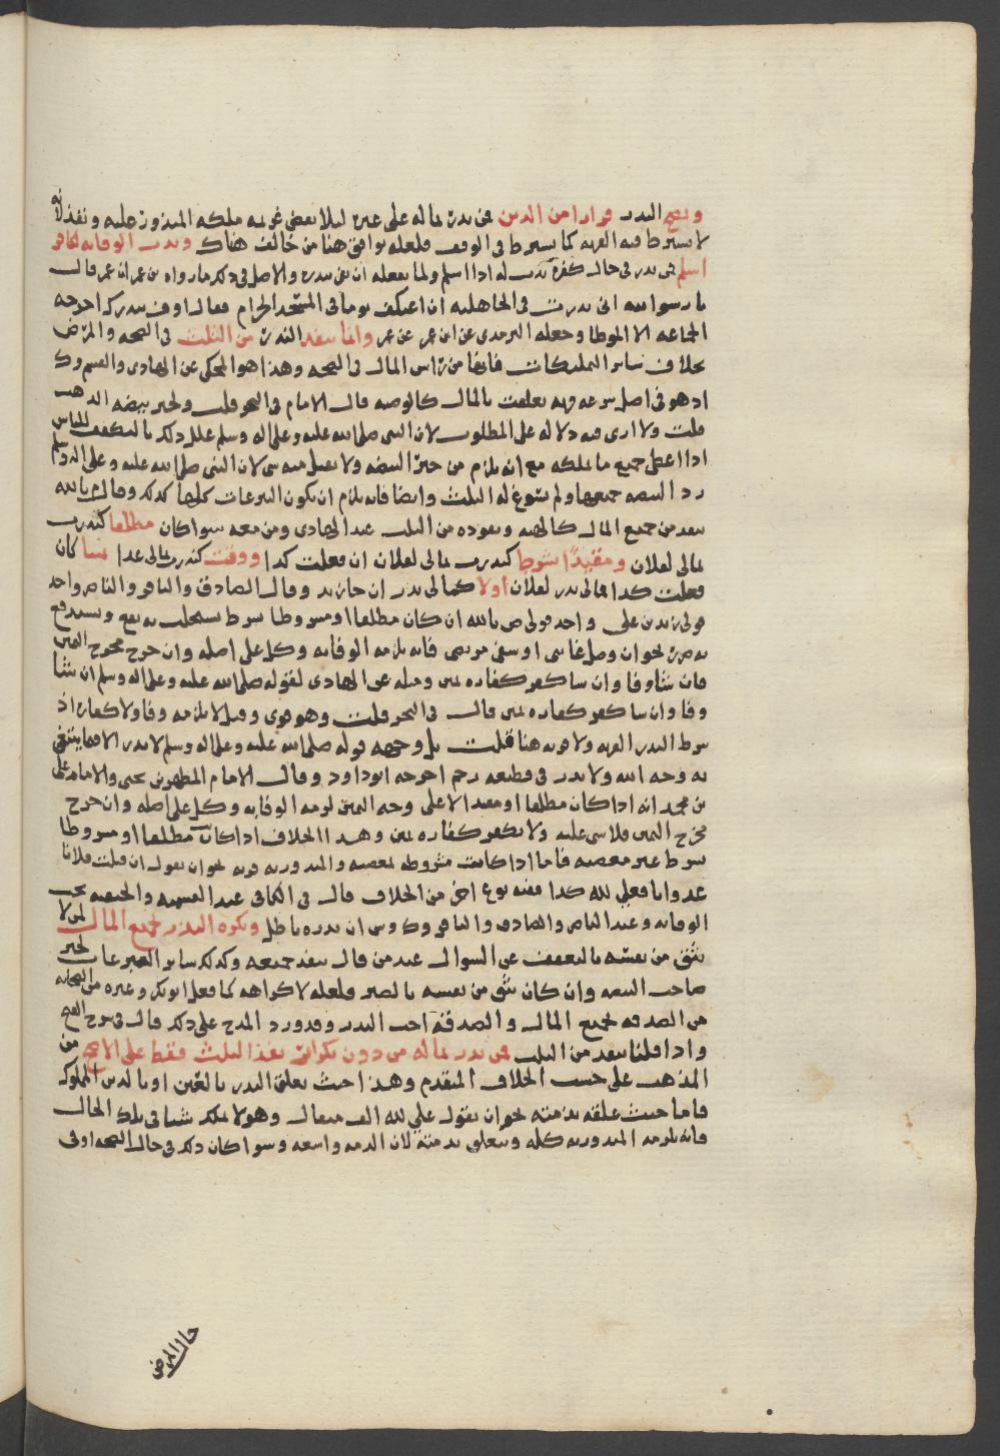 ويصح النذر فرارا من الدين فمن نذر بماله على غيره ليلا يقضي غرمه ملكه المنذور عليه ونفذ لانه
لا يشترط فيه القربه كما يشترط في الوقف فلعله توافق هنا من خالف هناك وندب الوفا به لكافر
اسلم فمن نذر في حال كفره ندب له اذا اسلم ولما يفعله ان يفي بنذره والاصل في ذلك ما رواه بن عمر ان عمر قال
يا رسول الله اني نذرت في الجاهليه ان اعتكف يوما في المسجد الحرام فقال اوف بنذرك اخرجه
الجماعه الا الموطا وجعله الترمذي عن ابن عمر عن عمر وانما ينفذ النذر من الثلث في الصحه والمرض
بخلاف ساير التمليكات فانها من راس المال في الصحه وهذا هو المحكي عن الهادي والقسم وك
اذ هو في اصل شرعه قربه تعلقت بالمال كالوصيه قال الامام في البحر قلت ولخبر بيضه الذهب
قلت ولا ارى فيه دلاله على المطلوب لان النبي صلى الله عليه وعلى اله وسلم علل ذلك بالتكفف للناس
اذا اعطى جميع ما يملكه مع انه يلزم من خبر البيضه ولا يقبل منه شي لان النبي صلى الله عليه وعلى اله وسلم
رد البيضه جميعها ولم يسوغ له الثلث وايضا فانه يلزم ان يكون التبرعات كلها كذلك وقال م بالله
ينفذ من جميع المال كالهبه ونفوذه من الثلث عند الهادي ومن معه سوا كان مطلقا كنذرت
بمالي لفلان ومقيدا شرطا كنذرت بمالي لفلان ان فعلت كذا او وقت كنذرت بمالي غدا شيا كان
فعلت كذا فمالي نذر لفلان اولا كمالي نذر ان جا زيد وقال الصادق والباقر والناصر واحد
قولي زيد بن علي واحد قولي ص بالله ان كان مطلقا او مشروطا بشرط يستجلب به نفع ويستدفع
به ضرر نحو ان وصل غايبي او شفي مريضي فانه يلزمه الوفا به وكل على اصله وان خرج مخرج اليمين
فان شا وفا وان شا كفر كفاره يمين ومثله عن الهادي لقوله صلى الله عليه وعلى اله وسلم ان شا
وفا وان شا كفر كفاره يمين قال في البحر قلت وهو قوي وقيل لا يلزمه وفا ولا كفاره اذ
شرط النذر القربه ولا قربه هنا قلت بل وجهه قوله صلى الله عليه وعلى اله وسلم لا نذر الا فيما يبتغى
به وجه الله ولا نذر في قطيعه رحم اخرجه ابو داود وقال الامام المطهر بن يحيى والامام علي
بن محمد انه اذا كان مطلقا او مقيدا لا على وجه اليمين لزمه الوفا به وكل على اصله وان خرج
مخرج اليمين فلا شي عليه ولا يكفر كفاره يمين وهذا الخلاف اذا كان مطلقا او مشروطا
بشرط غير معصيه فاما اذا كانت مشروطه بمعصيه والمنذور به قربه نحو ان يقول ان قتلت فلانا
عدوانا فعلي لله كذا ففيه نوع اخر من الخلاف قال في الكافي عند القسميه والحنفيه يجب
الوفا به وعند الناصر والصادق والباقر وك وش ان نذره باطل ويكره النذر بجميع المال لمن لا
يثق من نفسه بالتعفف عن السوال عند من قال ينفذ جميعه وكذلك ساير التبرعات لخبر
صاحب البيضه وان كان يثق من نفسه بالصبر فلعله لا كراهه كما فعل ابو بكر وغيره من الصحابه
من الصدقه بجميع المال والصدقه اخت النذر وقد ورد المدح على ذلك قال في شرح الفتح
واذا قلنا ينفذ من الثلث فمن نذر بماله من دون تكرار نفذ الثلث فقط على الاصح من
المذهب على حسب الخلاف المتقدم وهذا حيث تعلق النذر بالعين او بالدين المملوك
فاما حيث علقه بذمته نحو ان يقول علي لله الف مثقال وهو لا يملك شيا في تلك الحال
فانه يلزمه المنذور به كله ويتعلق بذمته لان الذمه واسعه وسوا كان ذلك في حال الصحه او في
حال المرض